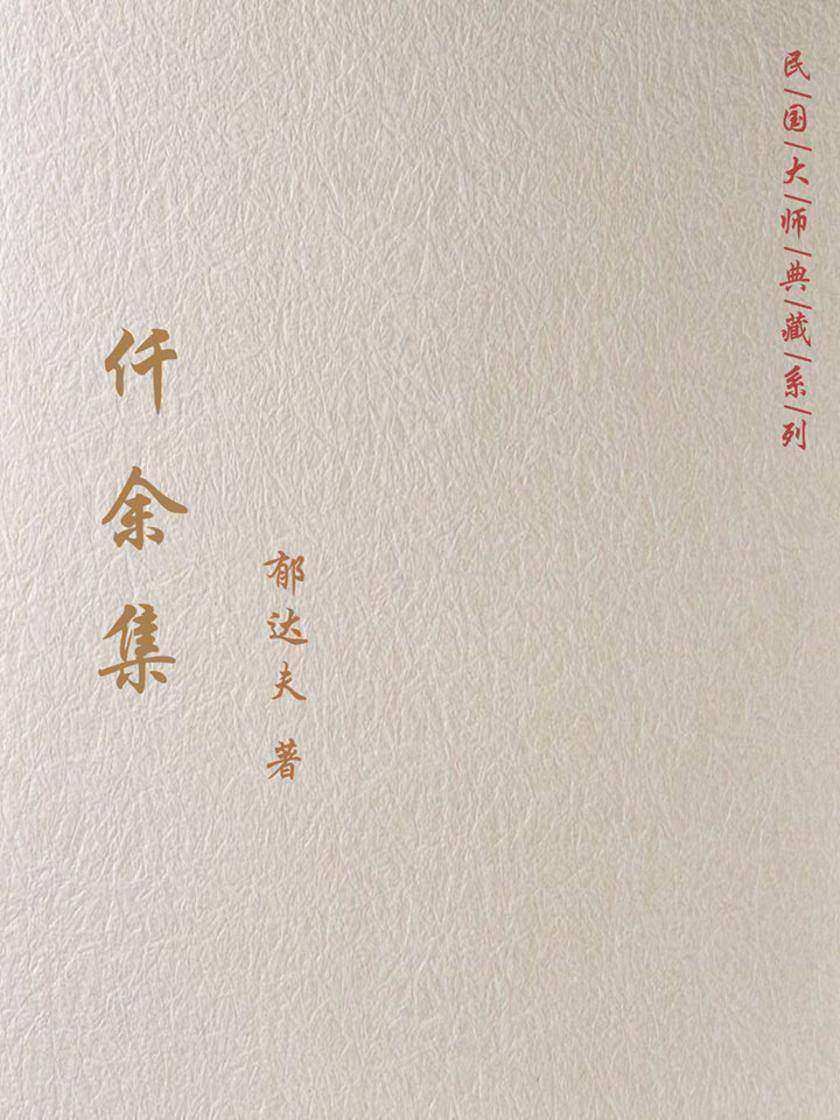 民|国|大|师|典|藏|系|列
仟余集
郁达夫 著